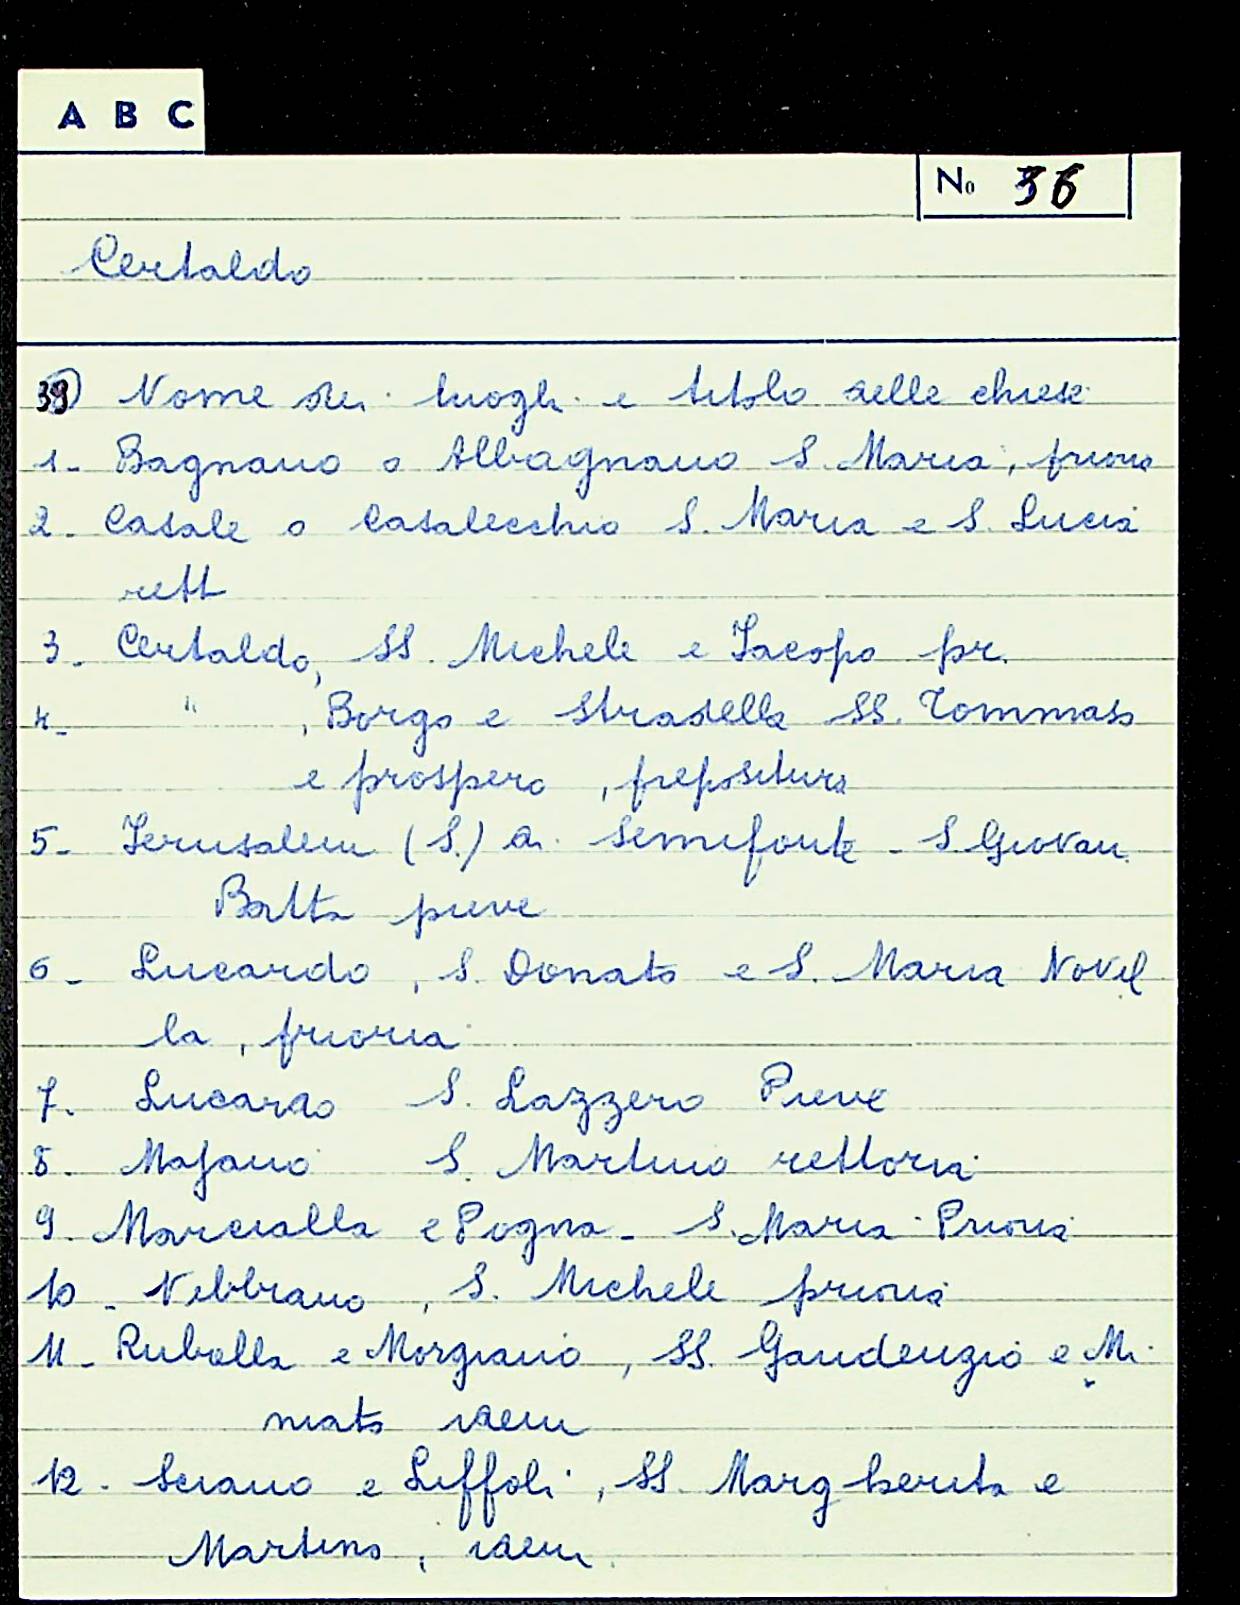 A B C
No 36
Certaldo
39) Nome dei luoghi e titolo delle chiese
1- Bagnano o Albagnano S. Maria, prioria
2- Casale o Casalecchio S. Maria e S. Lucia
rett
3- Certaldo, SS. Michele e Iacopo pr.
4- " , Borgo e Stradella SS. Tommaso
e prospero, prepositura
5- Ierusalem (S.) di Semifonte - S. Giovan
Batta pieve
6- Lucardo, S. Donato e S. Maria Novel
la, prioria
7- Lucardo S. Lazzero Pieve
8- Majano S. Martino rettoria
9- Marcialla e Pogna - S. Maria Prioria
10- Nebbiano, S. Michele prioria
11- Luballa e Morgiano, SS. Gaudenzio e Mi
niato idem
12- Sciano e Liffoli, SS. Margherita e
Martino, idem